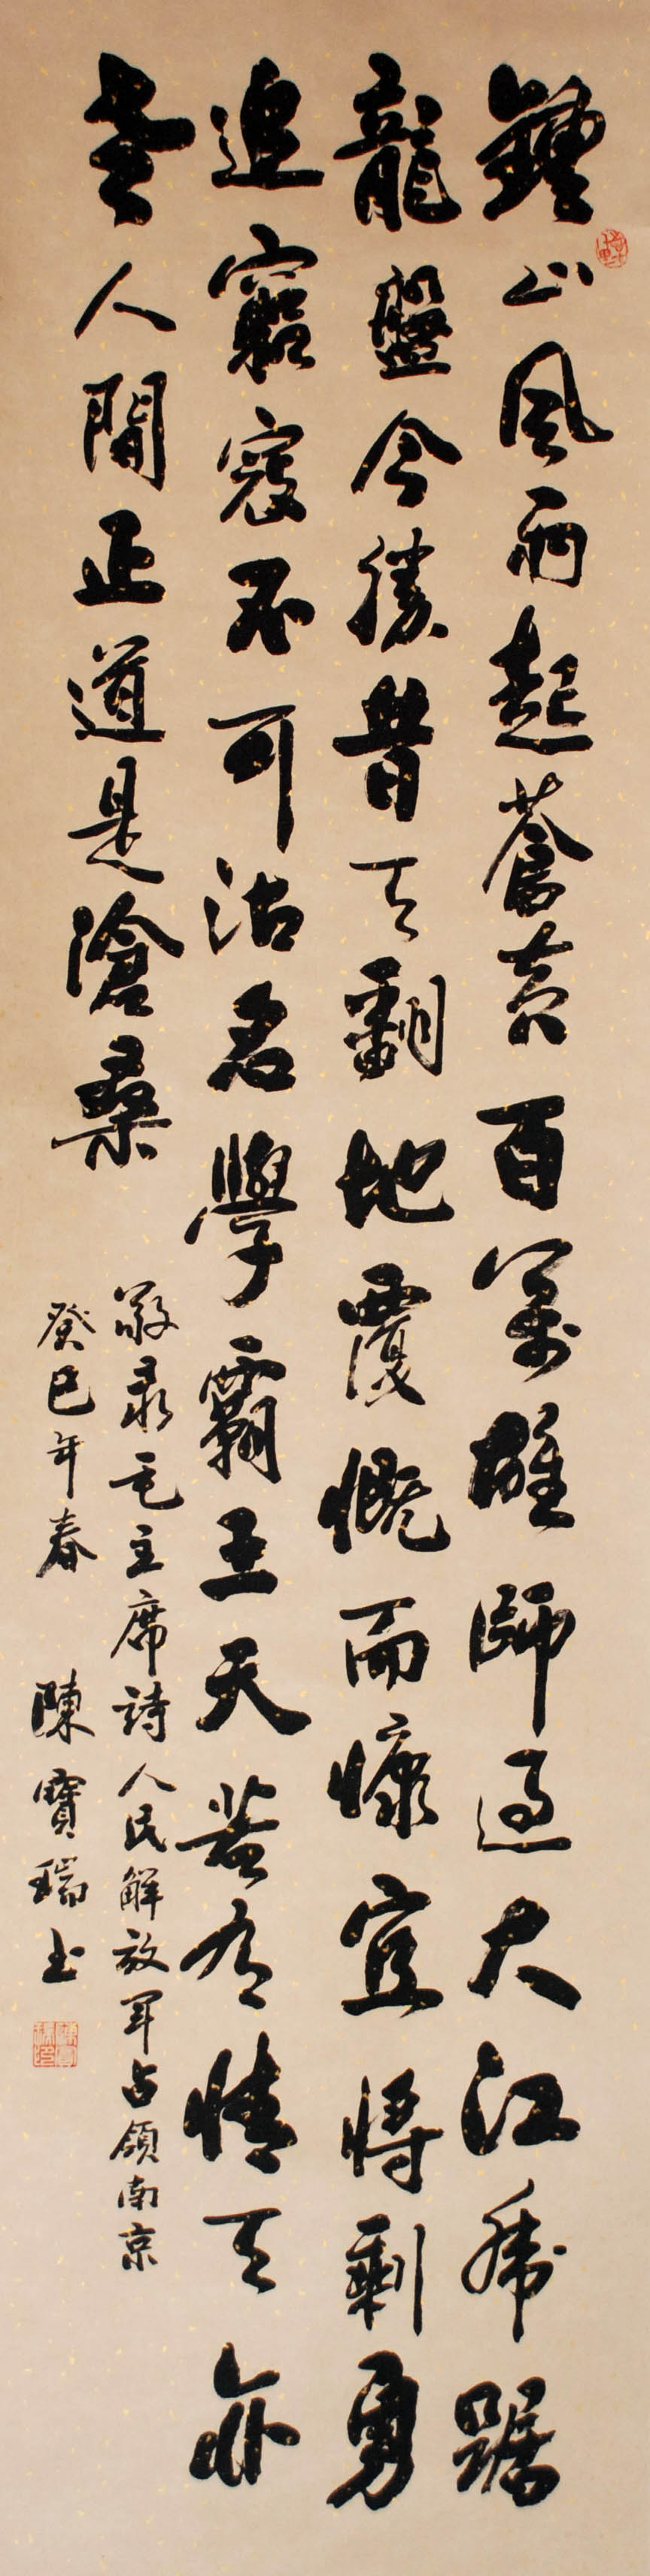 鍾山風雨起蒼黄百萬雄師過大江虎踞
龍盤今勝昔天翻地覆慨而慷宜將剩勇
追窮寇不可沽名學霸王天若有情天亦
老人間正道是滄桑
敬录毛主席詩人民解放军占領南京
癸巳年春 陳寶瑞书